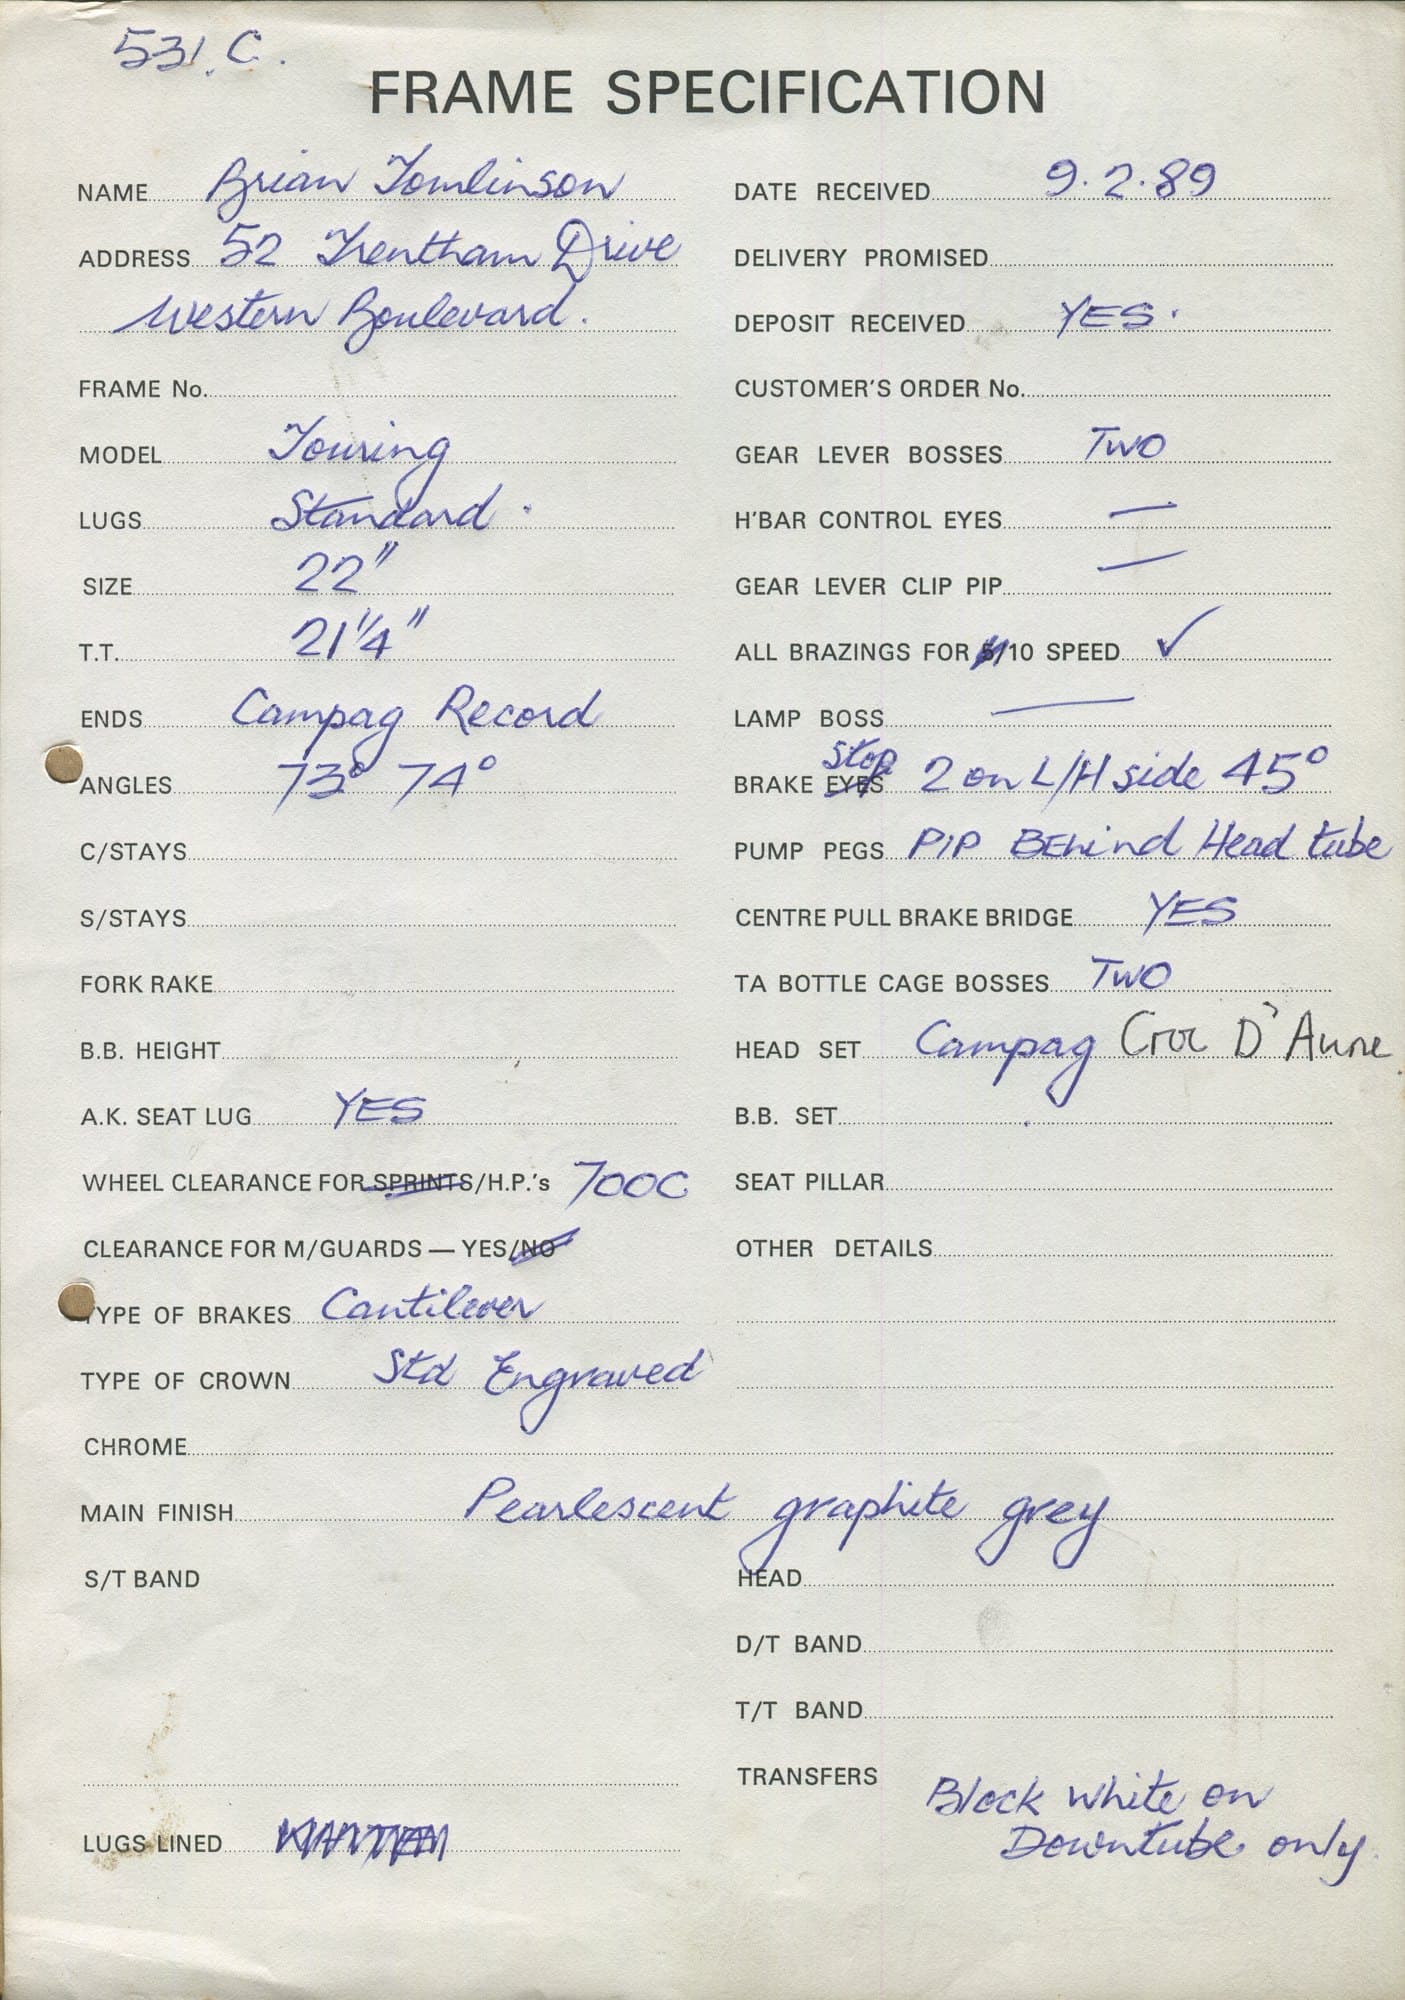 531.C.
FRAME SPECIFICATION
NAME Brian Tomlinson
ADDRESS 52 Trentham Drive
Western Boulevard.
FRAME No.
MODEL Touring
LUGS Standard.
SIZE 22"
T.T. 21 1/4"
ENDS Campag Record
ANGLES 73° 74°
C/STAYS
S/STAYS
FORK RAKE
B.B. HEIGHT
A.K. SEAT LUG YES
WHEEL CLEARANCE FOR SPRINTS/H.P.'s 700C
CLEARANCE FOR M/GUARDS — YES/NO
TYPE OF BRAKES Cantilever
TYPE OF CROWN Std Engraved
DATE RECEIVED 9.2.89
DELIVERY PROMISED
DEPOSIT RECEIVED YES.
CUSTOMER'S ORDER No.
GEAR LEVER BOSSES TWO
H'BAR CONTROL EYES —
GEAR LEVER CLIP PIP —
ALL BRAZINGS FOR 5/10 SPEED ✓
LAMP BOSS —
BRAKE EYES stop 2 on L/H side 45°
PUMP PEGS PIP BEHind Head tube
CENTRE PULL BRAKE BRIDGE YES
TA BOTTLE CAGE BOSSES TWO
HEAD SET Campag Croc D'Aune
B.B. SET
SEAT PILLAR
OTHER DETAILS
CHROME
MAIN FINISH Pearlescent graphite grey
S/T BAND
LUGS LINED
HEAD
D/T BAND
T/T BAND
TRANSFERS Block White on
Downtube only.